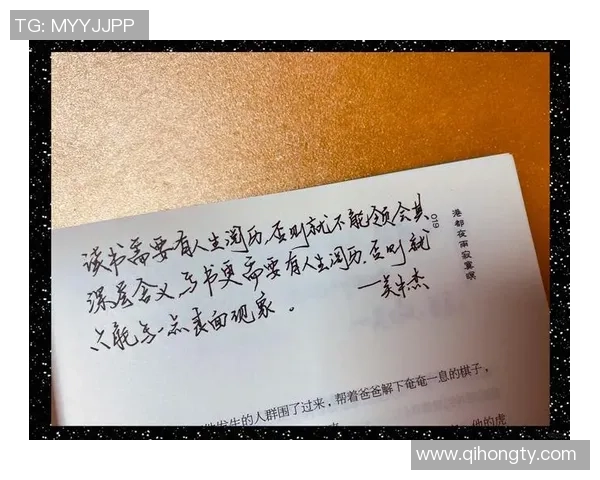 TG: MYYJJPP
读书需要有人生阅历,否则就不能领会其
深层含义,写书更需要有人生阅历,否则就
只能写一点表面现象。
019
港都夜雨寂寞暝
发生的人群围了过来,帮着爸爸解下奄奄一息的棋子,
他的虎
www.qihongty.com